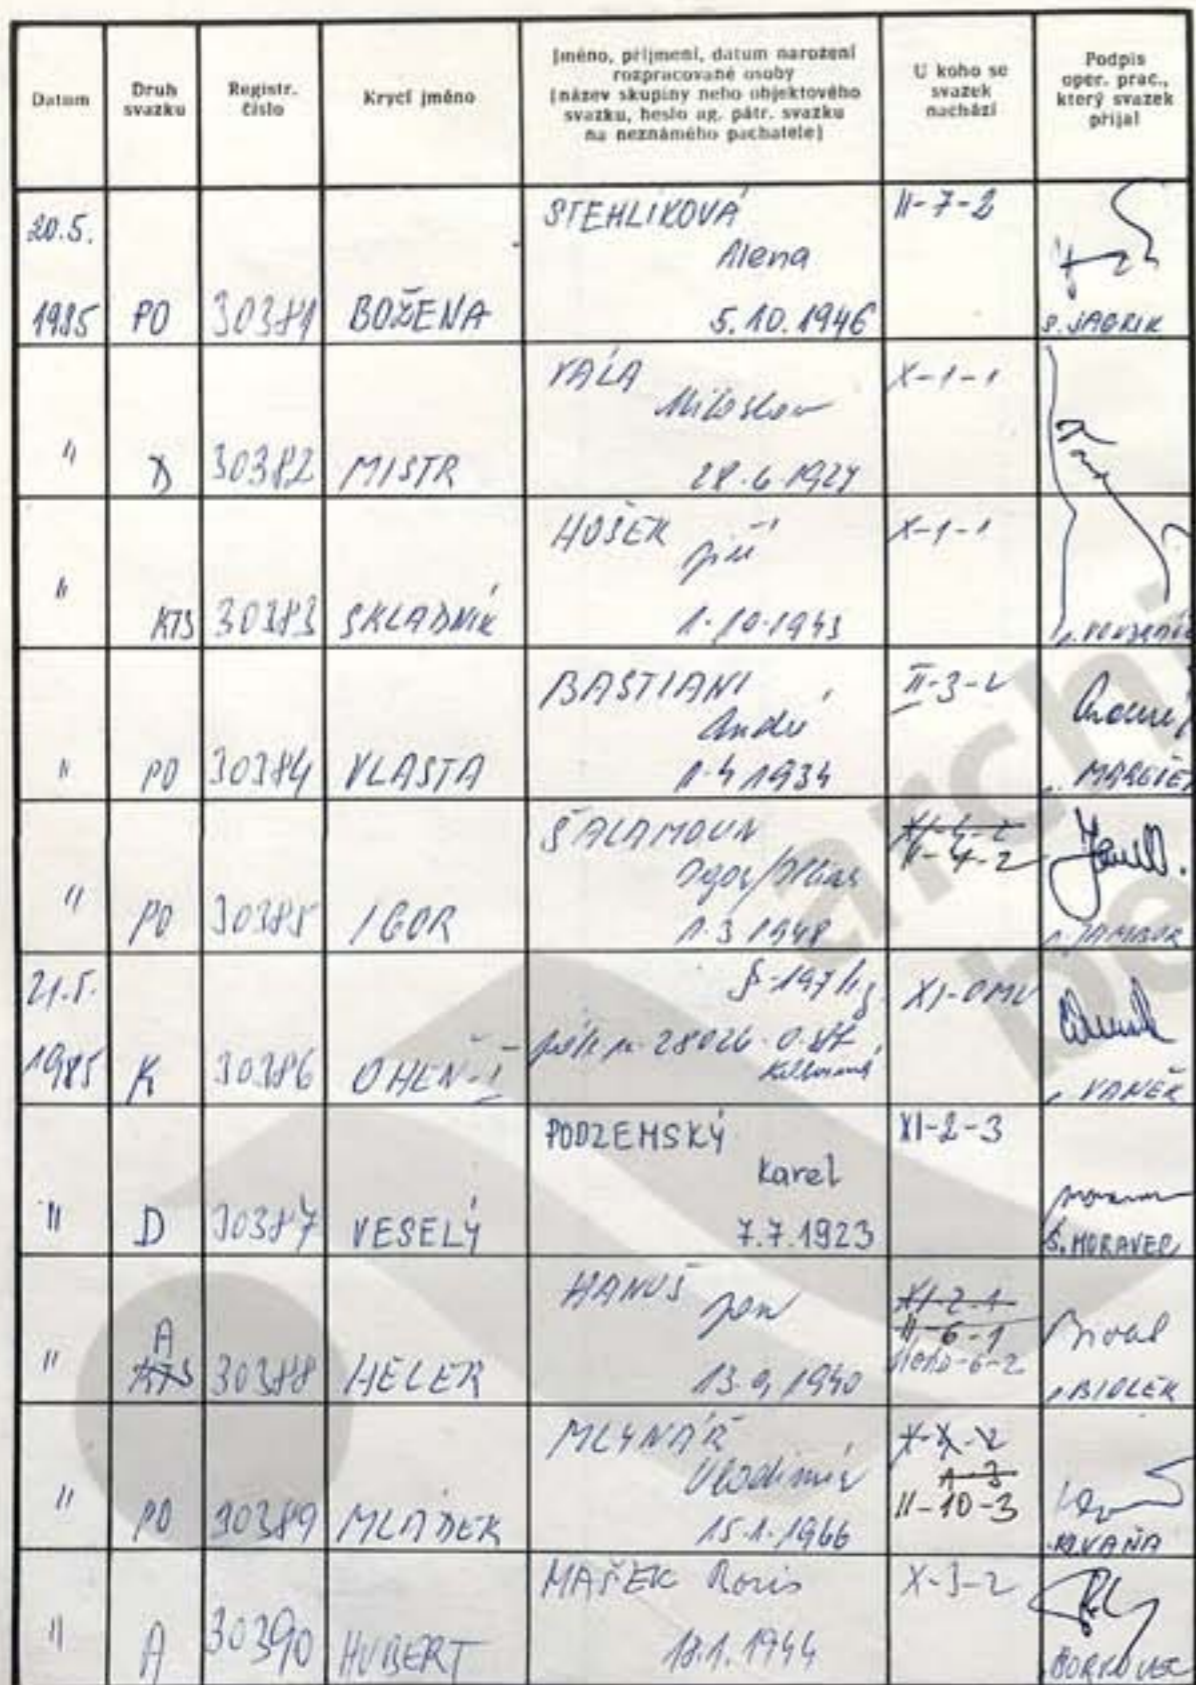 Datum
Druh
svazku
Registr.
číslo
Krycí jméno
Jméno, příjmení, datum narození
rozpracované osoby
(název skupiny nebo objektového
svazku, heslo ag. pátr. svazku
na neznámého pachatele)
U koho se
svazek
nachází
Podpis
oper. prac.,
který svazek
přijal
20.5.
1985 PO 30381 BOŽENA
STEHLIKOVÁ
Alena
5.10.1946
II-7-2
" D 30382 MISTR
VÁLA
Miloslav
X-1-1
" KTS 30383 SKLADNÍK
HOŠEK Jiří
1.10.1943
X-1-1
" PO 30384 VLASTA
BASTIANI
André
1.4.1934
II-3-2
" PO 30385 IGOR
ŠALAMOUN
1.3.1948
II-4-2
p. JAMBOR
21.5.
1985 K 30386 OHEŇ-I
28026
XI-OMV
p. VANĚK
" D 30387 VESELÝ
PODZEMSKÝ
Karel
7.7.1923
XI-2-3
S. MORAVEC
" A KTS 30388 HELER
HANUŠ Jan
13.9.1940
XI-2-1
II-6-1
p. BIOLEK
" PO 30389 MLÁDEK
MLYNÁŘ
Vladimír
15.1.1966
II-10-3
" A 30390 HUBERT
MAŠEK Boris
18.1.1944
X-3-2
BOROVEC